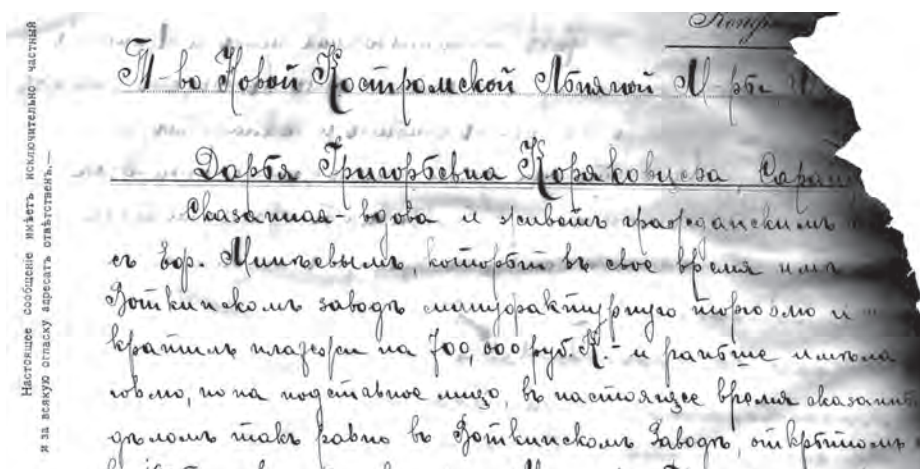 Настоящее сообщеніе имѣетъ исключительно частный
и за всякую огласку адресатъ отвѣтственъ.—
Т-во Новой Костромской Льняной М-ры
Дарья Григорьевна Коряковцева,
Сказанная – вдова и живетъ гражданскимъ
съ Ефр. Минѣевымъ, который въ свое время имѣ
Воткинскомъ заводѣ мануфактурную торговлю и
кратилъ платежи на 700,000 руб. и раньше имѣла
говлю, но на подставное лицо, въ настоящее время сказанн
дѣломъ такъ равно въ Воткинскомъ Заводѣ, открытомъ